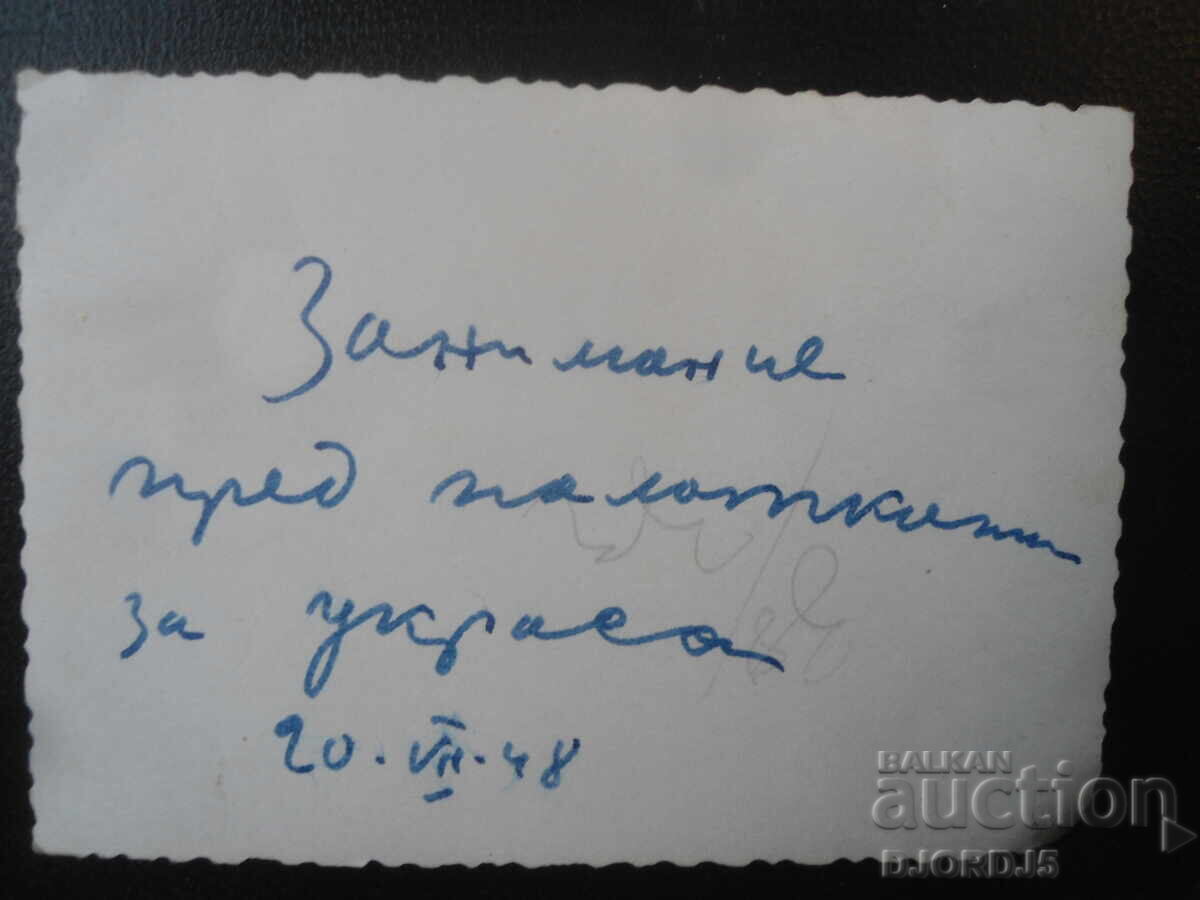 Занимание
пред палатката
за украса
20. VII. 48
BALKAN
auction
DJORDJ5